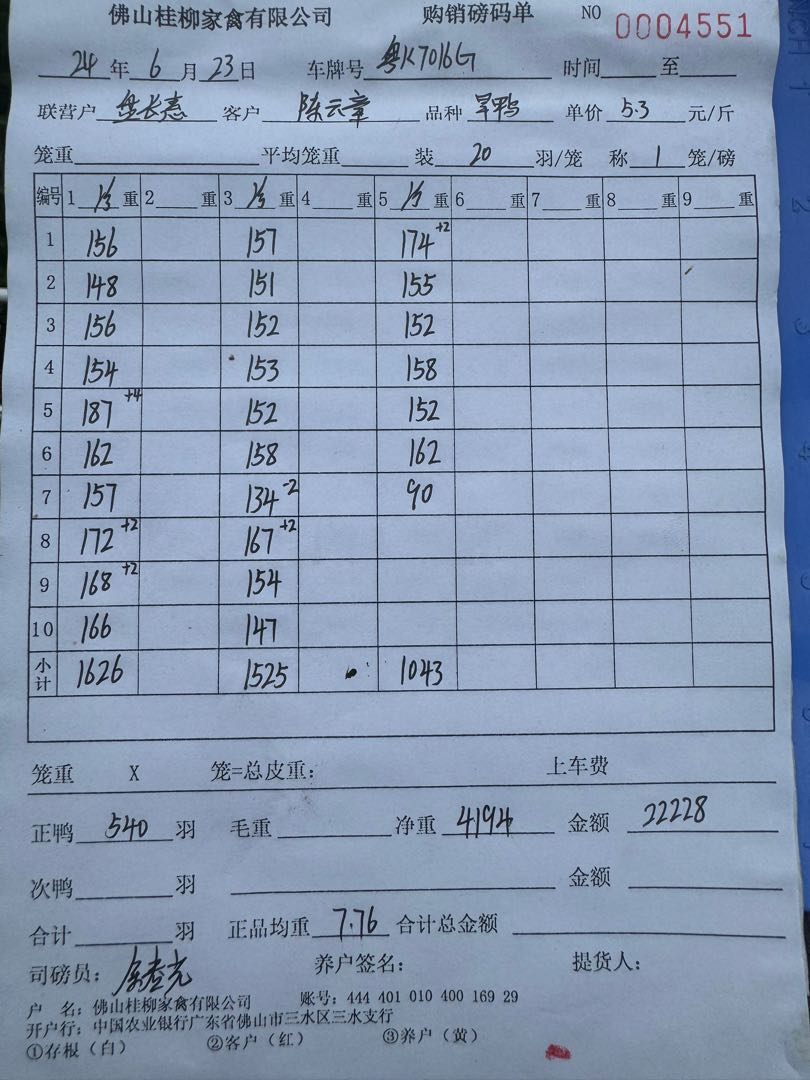 佛山桂柳家禽有限公司 购销磅码单 NO 0004551
24年6月23日 车牌号 粤K7016G 时间 至
联营户 盘长志 客户 陈云章 品种 旱鸭 单价 5.3 元/斤
笼重 平均笼重 装 20 羽/笼 称 1 笼/磅
编号 1 重 2 重 3 重 4 重 5 重 6 重 7 重 8 重 9 重
1 156 157 174+2
2 148 151 155
3 156 152 152
4 154 153 158
5 187+4 152 152
6 162 158 162
7 157 134-2 90
8 172+2 167+2
9 168+2 154
10 166 147
小计 1626 1525 1043
笼重 X 笼=总皮重: 上车费
正鸭 540 羽 毛重 净重 4194 金额 22228
次鸭 羽 金额
合计 羽 正品均重 7.76 合计总金额
司磅员: 养户签名: 提货人:
户 名: 佛山桂柳家禽有限公司 账号: 444 401 010 400 169 29
开户行: 中国农业银行广东省佛山市三水区三水支行
①存根(白) ②客户(红) ③养户(黄)